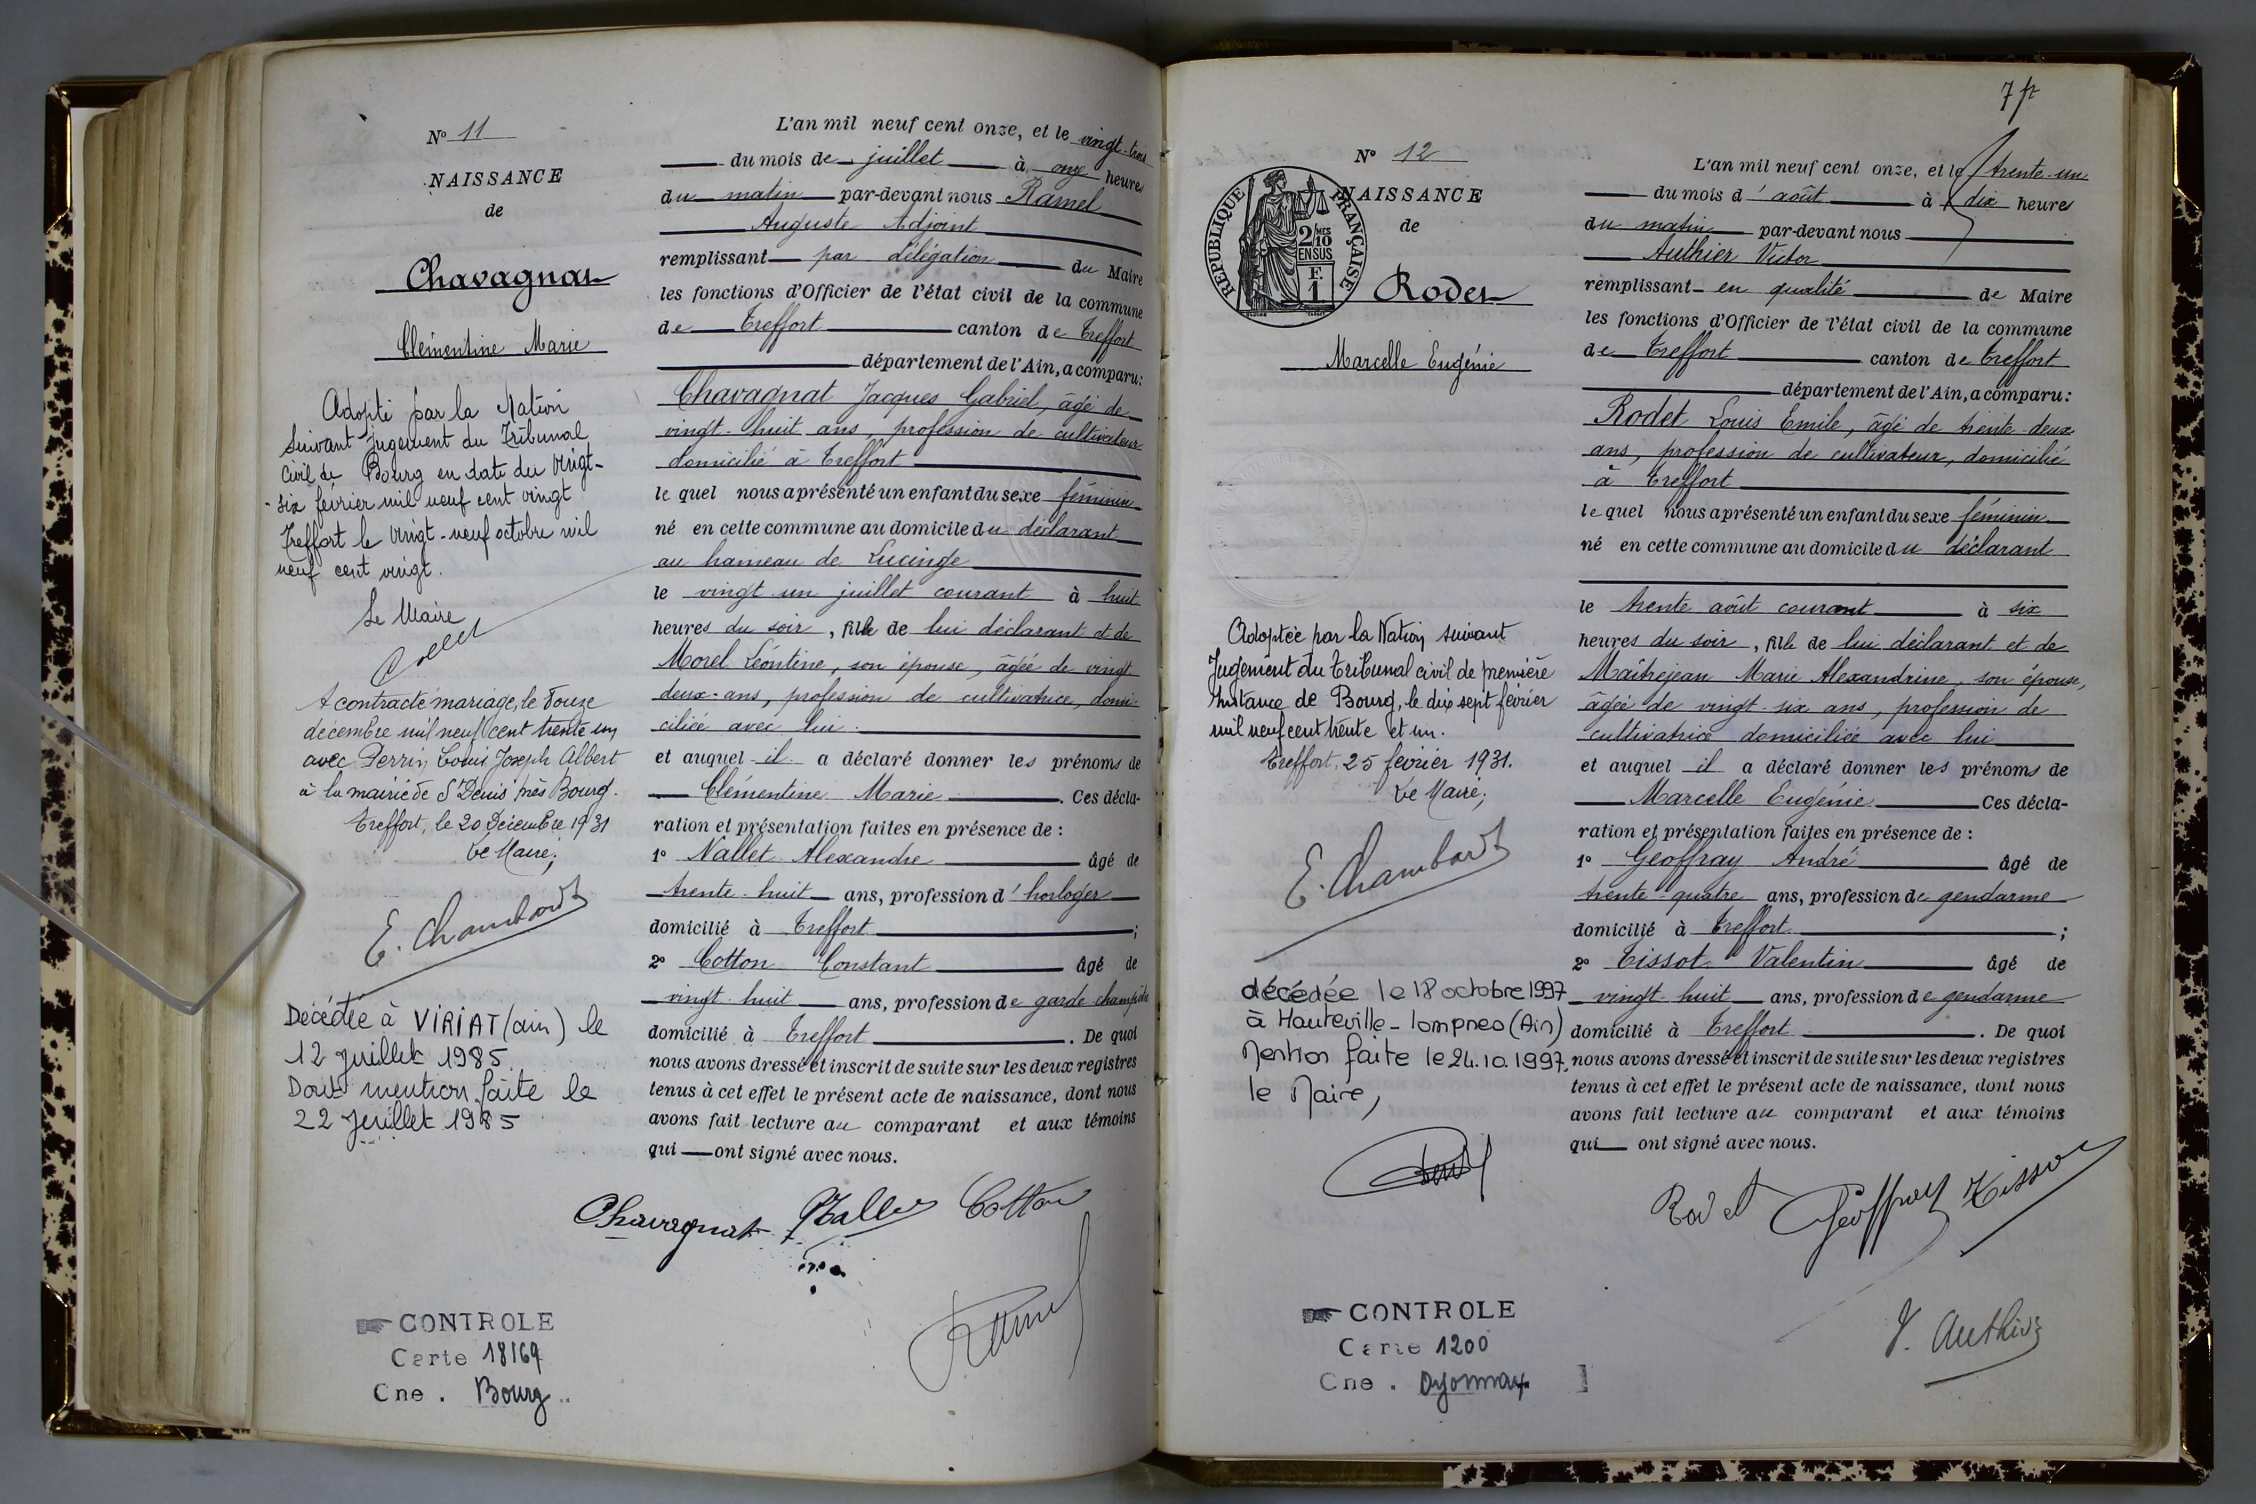 N° 11
NAISSANCE
de
Chavagnat
Clémentine Marie
Adopté par la Nation
suivant jugement du Tribunal
Civil de Bourg en date du vingt-
-six février mil neuf cent vingt
Treffort le vingt-neuf octobre mil
neuf cent vingt.
Le Maire
A contracté mariage, le douze
décembre mil neuf cent trente un
avec Perrin Louis Joseph Albert
à la mairie de St Denis près Bourg.
Treffort, le 20 Décembre 1931
Le Maire,
E. Chambard
Décédée à VIRIAT (ain) le
12 Juillet 1985.
Dont mention faite le
22 Juillet 1985
CONTROLE
Carte 18169
Cne. Bourg
L'an mil neuf cent onze, et le vingt-trois
du mois de juillet à onze heures
du matin par-devant nous Ramel
Auguste Adjoint
remplissant par délégation du Maire
les fonctions d'Officier de l'état civil de la commune
de Treffort canton de Treffort
département de l'Ain, a comparu:
Chavagnat Jacques Gabriel, âgé de
vingt-huit ans, profession de cultivateur
domicilié à Treffort
lequel nous a présenté un enfant du sexe féminin
né en cette commune au domicile du déclarant
au hameau de Lucinge
le vingt-un juillet courant à huit
heures du soir, fille de lui déclarant et de
Morel Léontine, son épouse, âgée de vingt
deux-ans, profession de cultivatrice, domi-
ciliée avec lui.
et auquel il a déclaré donner les prénoms de
Clémentine Marie. Ces décla-
ration et présentation faites en présence de :
1° Nallet Alexandre âgé de
trente-huit ans, profession d'horloger
domicilié à Treffort ;
2° Cotton Constant âgé de
vingt-huit ans, profession de garde champêtre
domicilié à Treffort. De quoi
nous avons dressé et inscrit de suite sur les deux registres
tenus à cet effet le présent acte de naissance, dont nous
avons fait lecture au comparant et aux témoins
qui ont signé avec nous.
Chavagnat Nallet Cotton
Ramel
7
N° 12
NAISSANCE
de
REPUBLIQUE FRANÇAISE
2/10 MES
EN SUS
F.
1
Rodet
Marcelle Eugénie
Adoptée par la Nation suivant
Jugement du Tribunal civil de première
Instance de Bourg, le dix sept février
mil neuf cent trente et un.
Treffort, 25 février 1931.
Le Maire,
E. Chambard
décédée le 18 octobre 1997
à Hauteville-Lompnes (Ain)
Mention faite le 24.10.1997.
le Maire,
CONTROLE
Carte 1200
Cne. Oyonnax
L'an mil neuf cent onze, et le trente-un
du mois d'août à dix heures
du matin par-devant nous
Authier Victor
remplissant en qualité de Maire
les fonctions d'Officier de l'état civil de la commune
de Treffort canton de Treffort
département de l'Ain, a comparu:
Rodet Louis Emile, âgé de trente-deux
ans, profession de cultivateur, domicilié
à Treffort
lequel nous a présenté un enfant du sexe féminin
né en cette commune au domicile du déclarant
le trente août courant à six
heures du soir, fille de lui déclarant et de
Maîtrejean Marie Alexandrine, son épouse,
âgée de vingt-six ans, profession de
cultivatrice domiciliée avec lui
et auquel il a déclaré donner les prénoms de
Marcelle Eugénie Ces décla-
ration et présentation faites en présence de :
1° Geoffray André âgé de
trente-quatre ans, profession de gendarme
domicilié à Treffort ;
2° Tissot Valentin âgé de
vingt-huit ans, profession de gendarme
domicilié à Treffort. De quoi
nous avons dressé et inscrit de suite sur les deux registres
tenus à cet effet le présent acte de naissance, dont nous
avons fait lecture au comparant et aux témoins
qui ont signé avec nous.
Rodet Geoffray Tissot
V. Authier